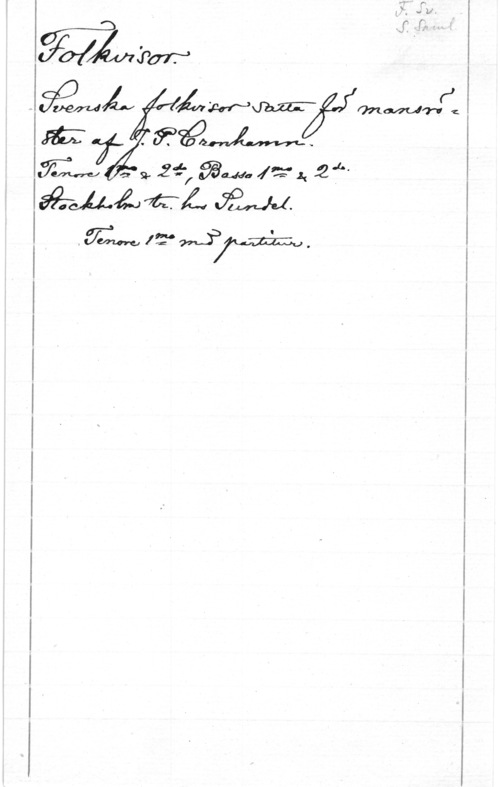 F. Sv.
S. Saml
Folkvisor.
Svenska folkvisor satta för mansrö=
ster af J. P. Cronhamn.
Tenore 1mo & 2do, Basso 1mo & 2do.
Stockholm tr. hos Sundel.
Tenore 1mo med partitur.